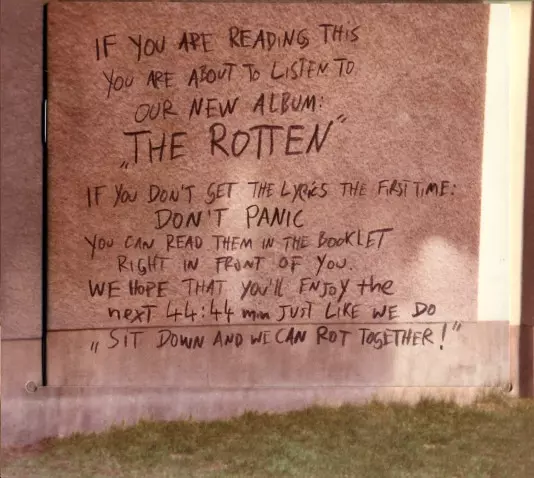 IF YOU ARE READING THIS
YOU ARE ABOUT TO LISTEN TO
OUR NEW ALBUM:
„THE ROTTEN“
IF YOU DON'T GET THE LYRICS THE FIRST TIME:
DON'T PANIC
YOU CAN READ THEM IN THE BOOKLET
RIGHT IN FRONT OF YOU.
WE HOPE THAT YOU'LL ENJOY the
next 44:44 min JUST LIKE WE DO
„SIT DOWN AND WE CAN ROT TOGETHER!“